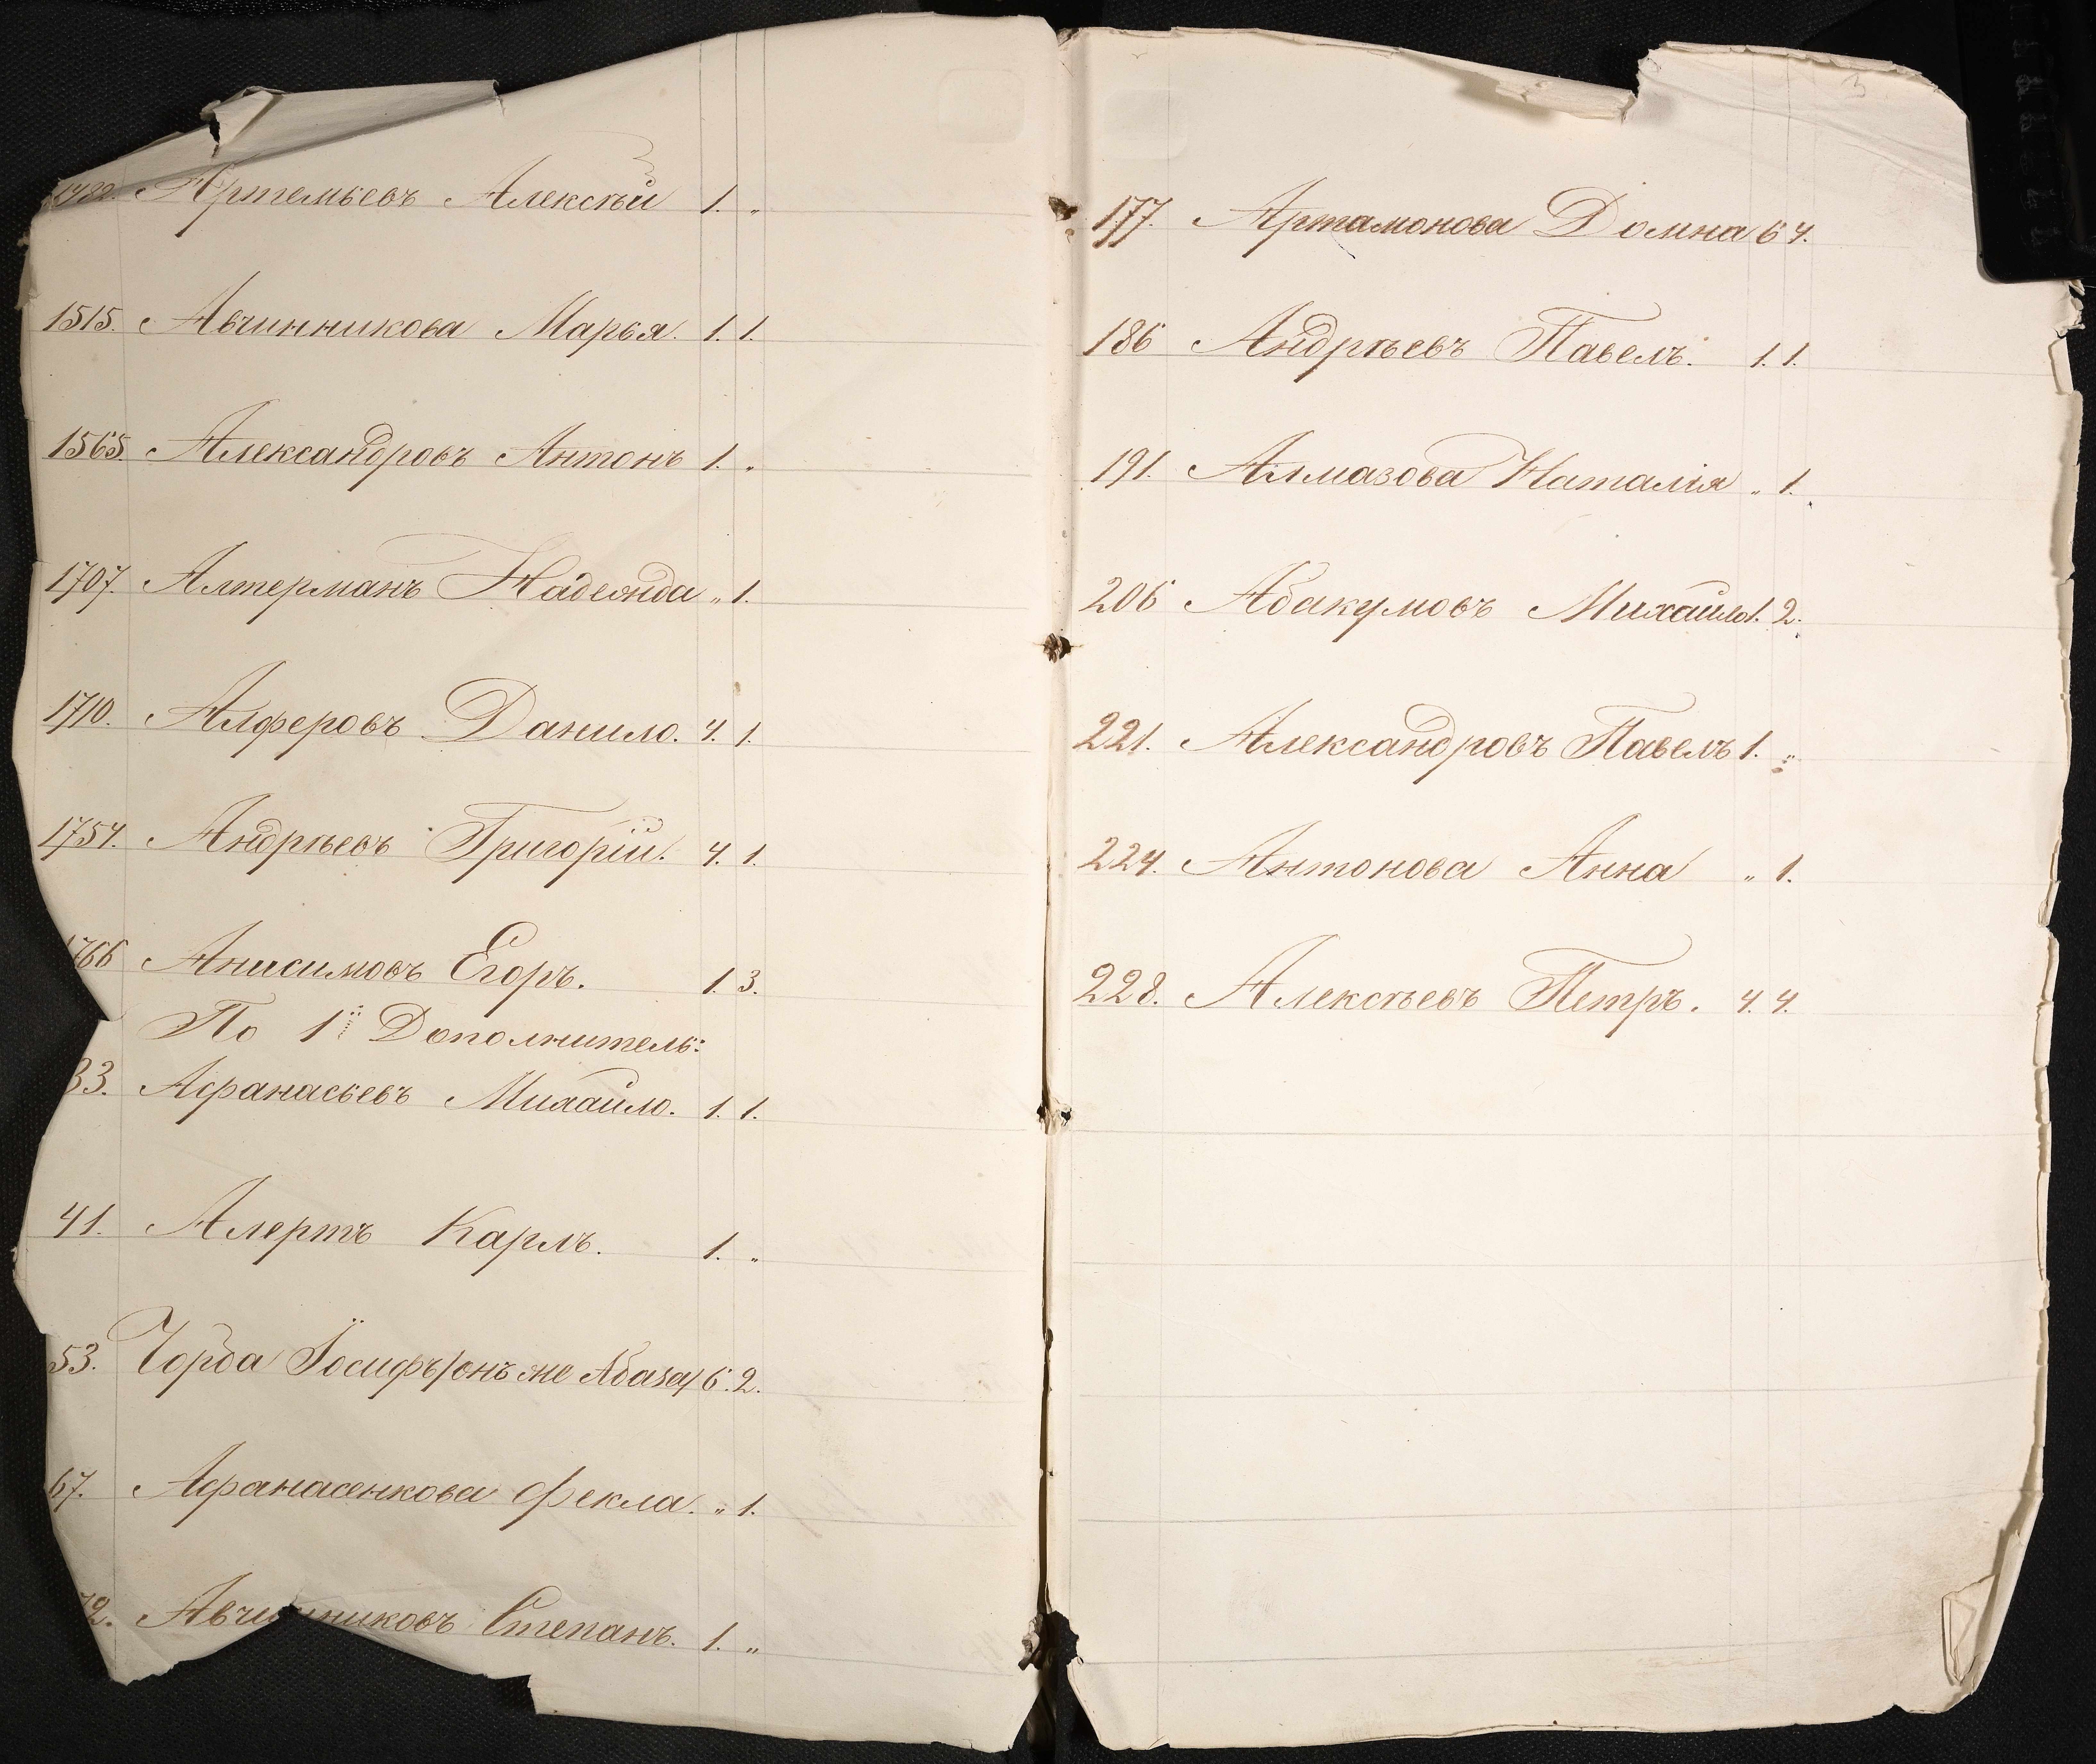 1482. Артемьевъ Алексѣй 1. „
1515. Авчинникова Марья. 1. 1.
1565. Александровъ Антонъ 1. „
1707. Алтерманъ Надежда „ 1.
1710. Алферовъ Данило. 4. 1.
1754. Андрѣевъ Григорій. 4. 1.
1766 Анисимовъ Егоръ. 1. 3.
По 1й Дополнитель:
33. Афанасьевъ Михайло. 1. 1.
41. Алертъ Карлъ. 1. „
53. Чорба Іосифъ /онъ же Абаза/ 6. 2.
67. Афанасенкова Фекла. „ 1.
72. Авчинниковъ Степанъ. 1. „
3
177. Артамонова Домна 6 4.
186 Андрѣевъ Павелъ. 1. 1.
191. Алмазова Наталія „ 1.
206 Абакумовъ Михайло 1. 2.
221. Александровъ Павелъ 1. „
224. Антонова Анна „ 1.
228. Алексѣевъ Петръ. 4. 4.